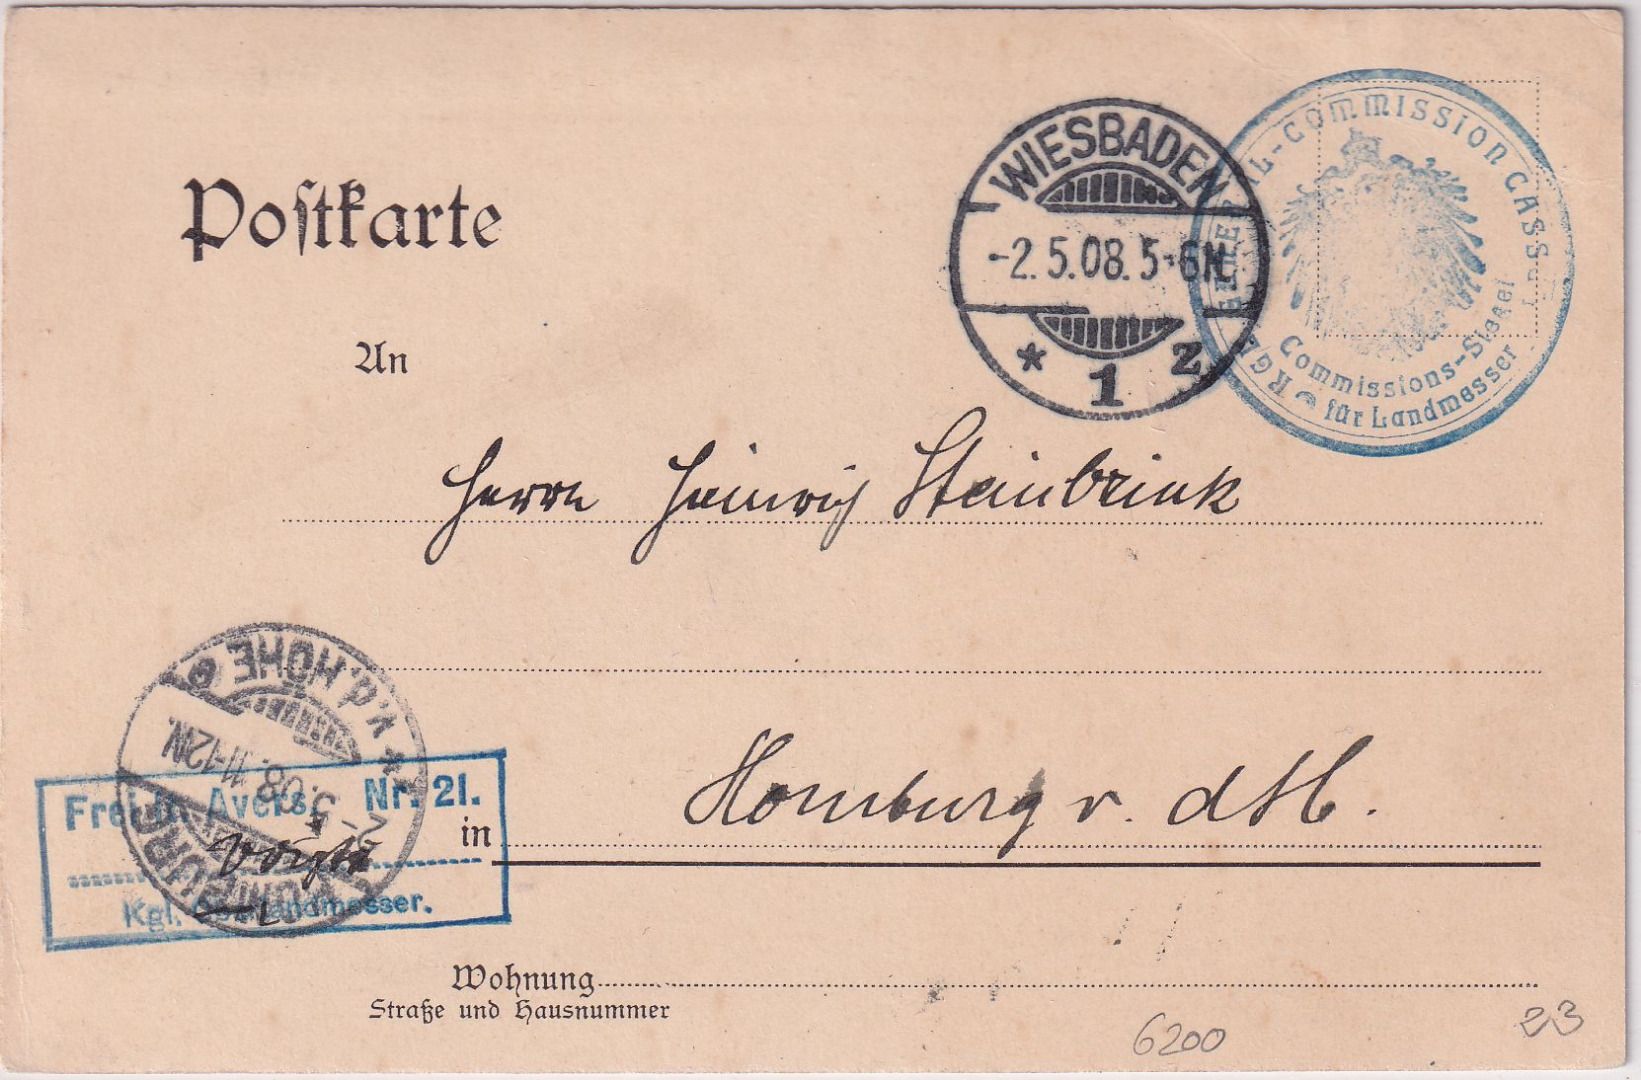 Postkarte
WIESBADEN
-2.5.08.5-6N.
* 1 z
KGL. GENERAL-COMMISSION CASSEL
Commissions-Siegel
für Landmesser
An
Herrn Heinrich Steinbrink
HOMBURG v.d.HÖHE
5.08.11-12N.
Frei lt. Avers. Nr. 21.
Kgl. Oberlandmesser.
in Homburg v. d. H.
Wohnung
Straße und Hausnummer
6200
23